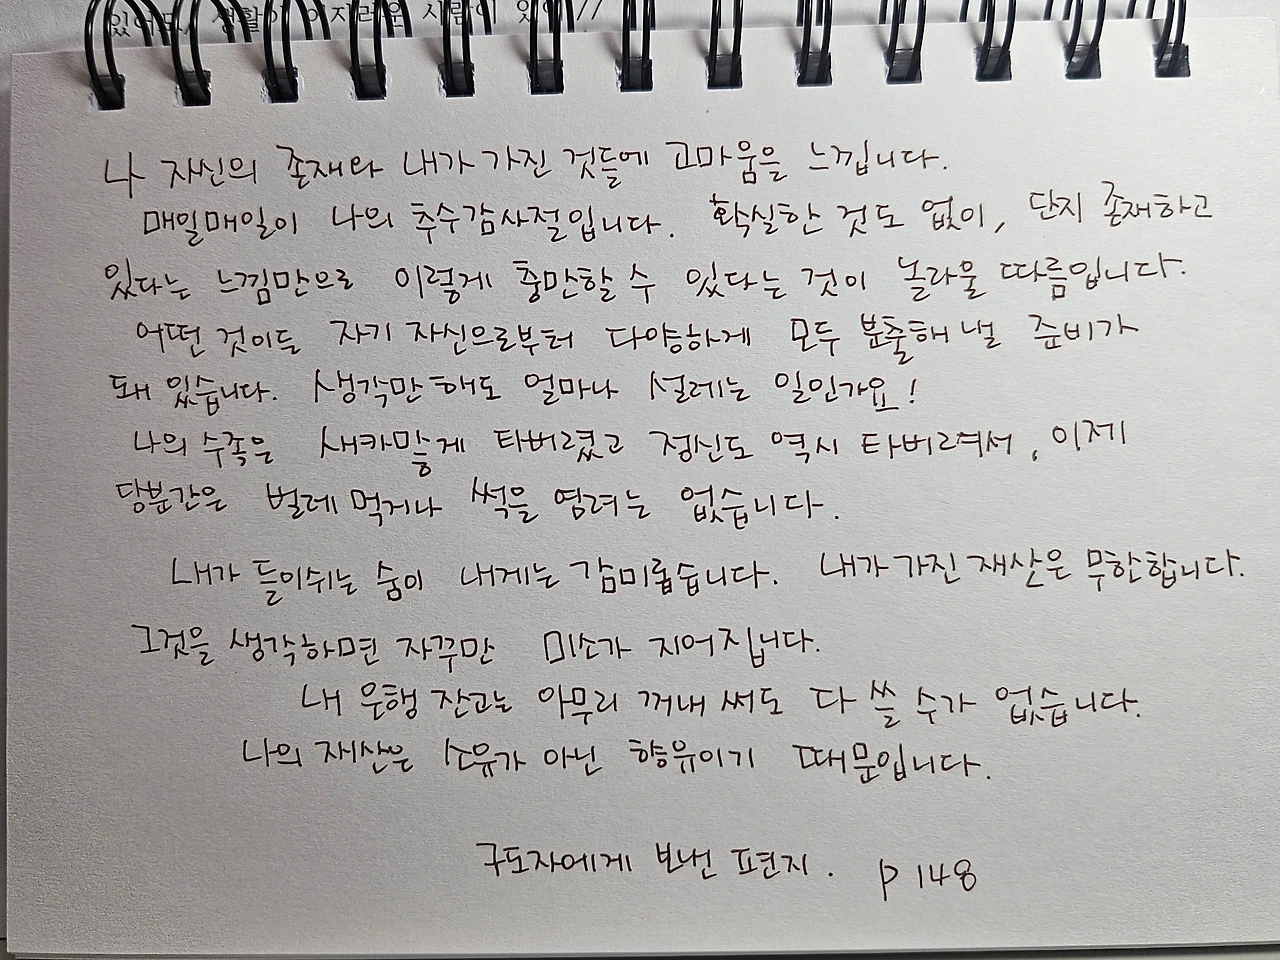 있어도, 생활이 어지러운 사람이 있어//
나 자신의 존재와 내가 가진 것들에 고마움을 느낍니다.
매일매일이 나의 추수감사절입니다. 확실한 것도 없이, 단지 존재하고
있다는 느낌만으로 이렇게 충만할 수 있다는 것이 놀라울 따름입니다.
어떤 것이든 자기 자신으로부터 다양하게 모두 분출해 낼 준비가
돼 있습니다. 생각만 해도 얼마나 설레는 일인가요!
나의 수족은 새카맣게 타버렸고 정신도 역시 타버려서, 이제
당분간은 벌레 먹거나 썩을 염려는 없습니다.
내가 들이쉬는 숨이 내게는 감미롭습니다. 내가 가진 재산은 무한합니다.
그것을 생각하면 자꾸만 미소가 지어집니다.
내 은행 잔고는 아무리 꺼내 써도 다 쓸 수가 없습니다.
나의 재산은 소유가 아닌 향유이기 때문입니다.
구도자에게 보낸 편지. p 148